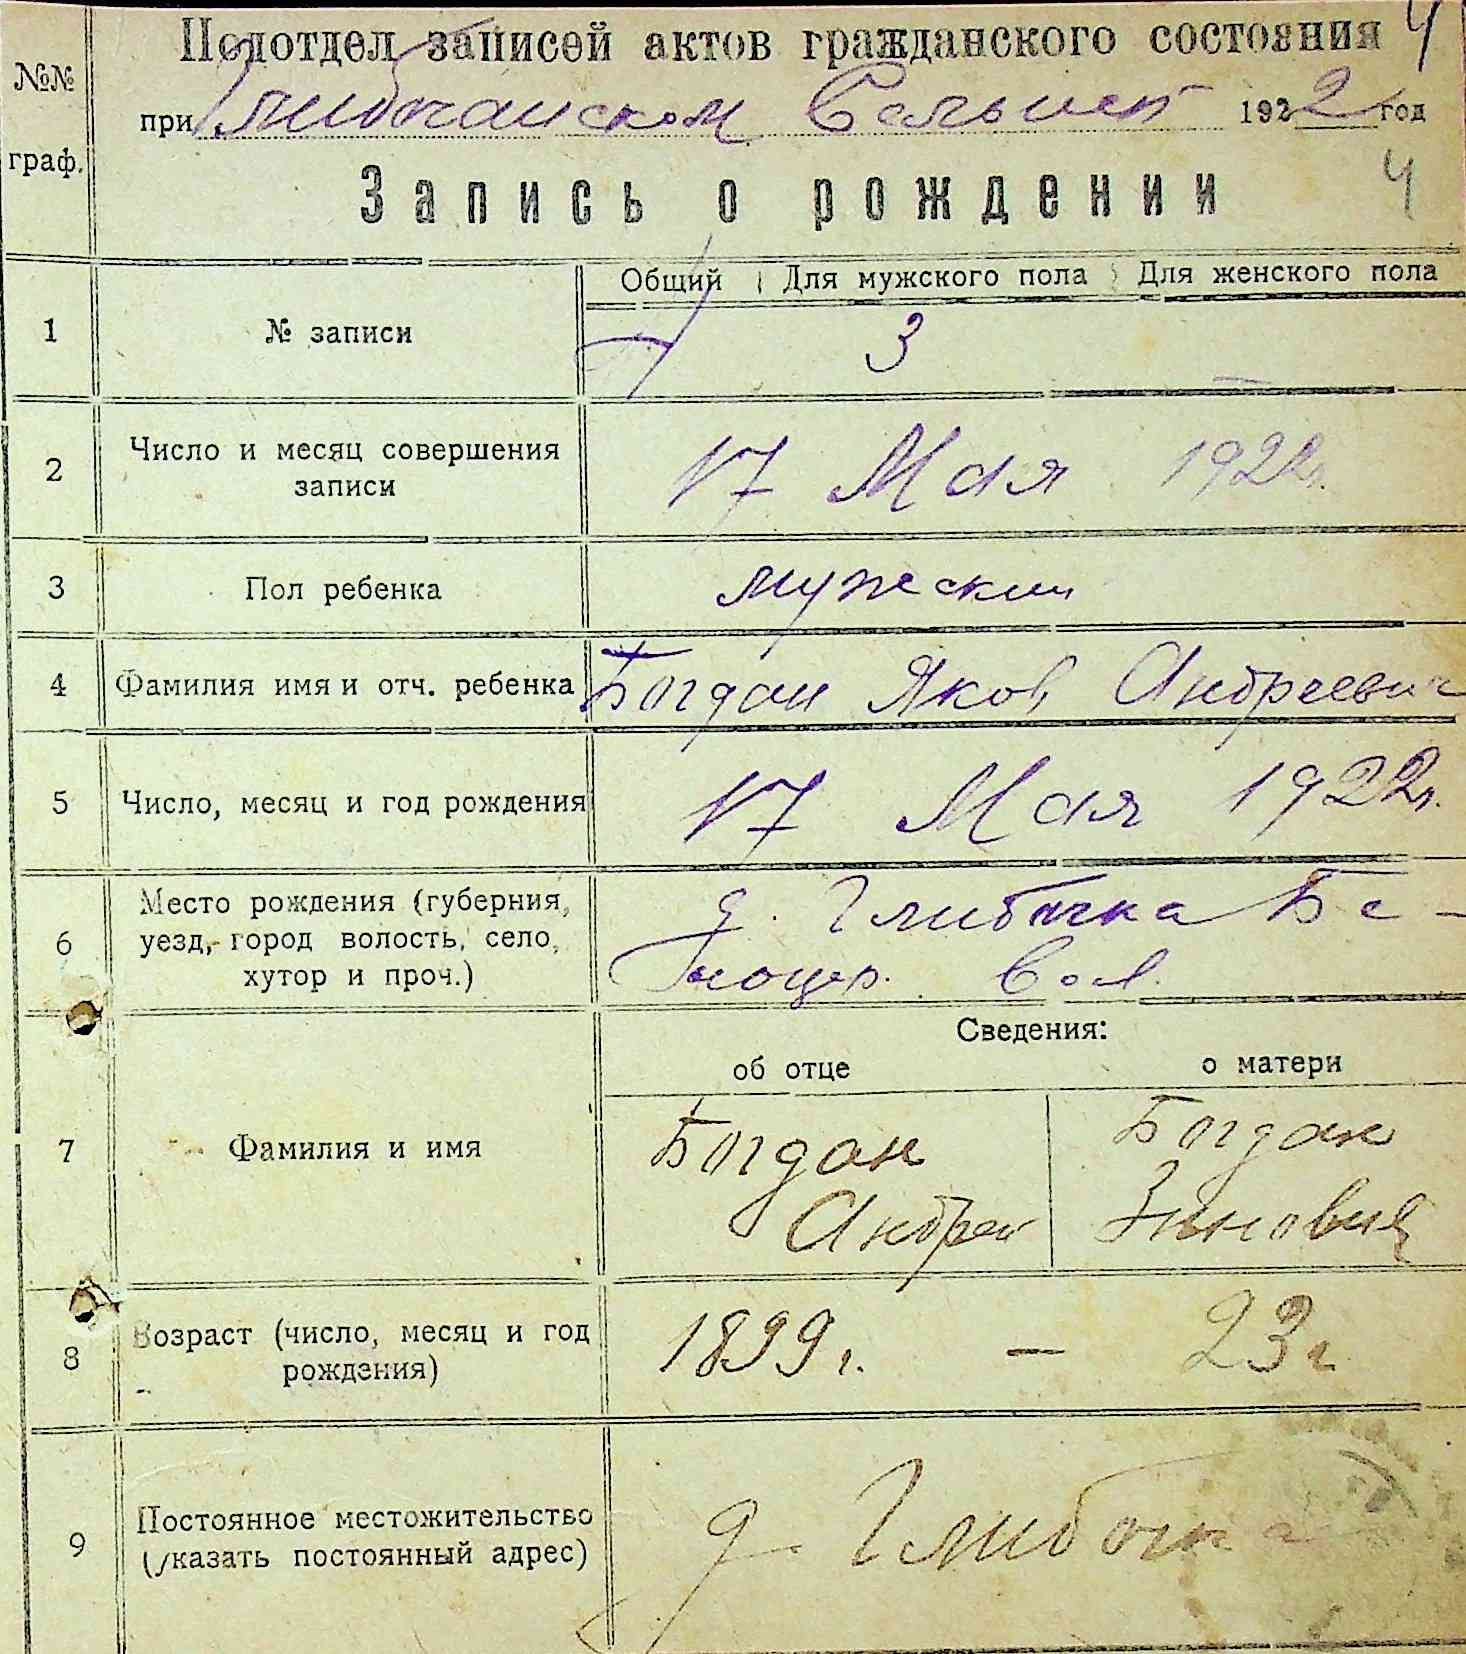 Подотдел записей актов гражданского состояния 4
при Глибочанском 1922 год
№№ граф.
Запись о рождении 4
Общий Для мужского пола Для женского пола
1 № записи 3 —
2 Число и месяц совершения 17 Мая 1922г.
записи
3 Пол ребенка мужеский
4 Фамилия имя и отч. ребенка Богдан Яков Андреевич
5 Число, месяц и год рождения 17 Мая 1922г.
6 Место рождения (губерния, д. Глибочка Бе-
уезд, город волость, село,
хутор и проч.) лоцер. вол.
Сведения:
об отце о матери
7 Фамилия и имя Богдан Богдан
Андрей Зиновия
8 Возраст (число, месяц и год 1899г. — 23г
рождения)
9 Постоянное местожительство д. Глибочка
(указать постоянный адрес)